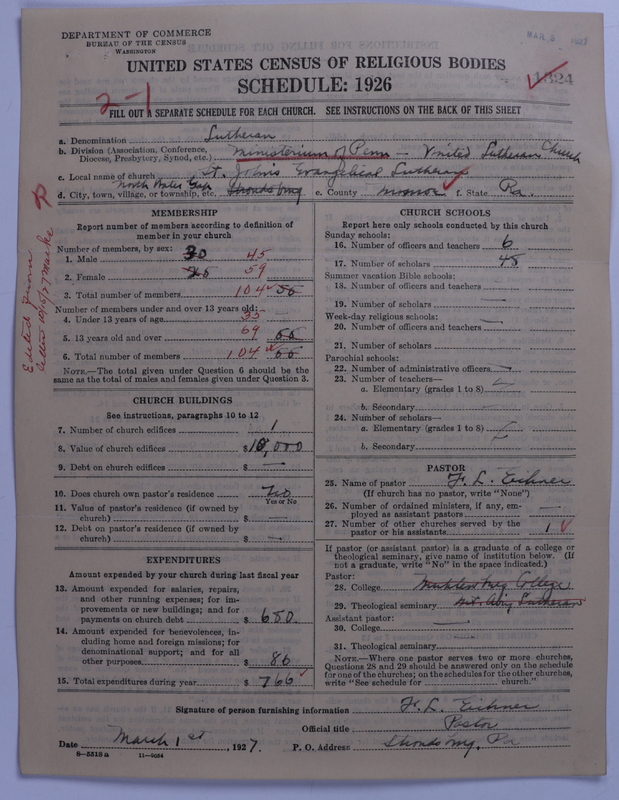 DEPARTMENT OF COMMERCE
BUREAU OF THE CENSUS
WASHINGTON
MAR 5 1927
UNITED STATES CENSUS OF RELIGIOUS BODIES
SCHEDULE: 1926
1324
2-1
FILL OUT A SEPARATE SCHEDULE FOR EACH CHURCH. SEE INSTRUCTIONS ON THE BACK OF THIS SHEET
a. Denomination Lutheran
b. Division (Association, Conference, Diocese, Presbytery, Synod, etc.) Ministerium of Penn — United Lutheran Church
c. Local name of church St. John's Evangelical Lutheran
d. City, town, village, or township, etc. North Water Gap Stroudsburg e. County Monroe f. State Pa.
Edited from letter 10/6/27
MEMBERSHIP
Report number of members according to definition of
member in your church
Number of members, by sex:
1. Male 30 45
2. Female 25 59
3. Total number of members 104 55
Number of members under and over 13 years old:
4. Under 13 years of age 35
5. 13 years old and over 69 55
6. Total number of members 104 55
NOTE.—The total given under Question 6 should be the
same as the total of males and females given under Question 3.
CHURCH BUILDINGS
See instructions, paragraphs 10 to 12
7. Number of church edifices 1
8. Value of church edifices $10,000
9. Debt on church edifices $ —
10. Does church own pastor's residence No
Yes or No
11. Value of pastor's residence (if owned by
church) $ —
12. Debt on pastor's residence (if owned by
church) $ —
EXPENDITURES
Amount expended by your church during last fiscal year
13. Amount expended for salaries, repairs,
and other running expenses; for im-
provements or new buildings; and for
payments on church debt $ 680
14. Amount expended for benevolences, in-
cluding home and foreign missions; for
denominational support; and for all
other purposes $ 86
15. Total expenditures during year $ 766
CHURCH SCHOOLS
Report here only schools conducted by this church
Sunday schools:
16. Number of officers and teachers 6
17. Number of scholars 48
Summer vacation Bible schools:
18. Number of officers and teachers —
19. Number of scholars —
Week-day religious schools:
20. Number of officers and teachers —
21. Number of scholars —
Parochial schools:
22. Number of administrative officers —
23. Number of teachers—
a. Elementary (grades 1 to 8) —
b. Secondary —
24. Number of scholars—
a. Elementary (grades 1 to 8) —
b. Secondary —
PASTOR
25. Name of pastor F. L. Eichner
(If church has no pastor, write "None")
26. Number of ordained ministers, if any, em-
ployed as assistant pastors —
27. Number of other churches served by the
pastor or his assistants 1
If pastor (or assistant pastor) is a graduate of a college or
theological seminary, give name of institution below. (If
not a graduate, write "No" in the space indicated.)
Pastor:
28. College Muhlenberg College
29. Theological seminary Mt. Airy Lutheran
Assistant pastor:
30. College —
31. Theological seminary —
NOTE.—Where one pastor serves two or more churches,
Questions 28 and 29 should be answered only on the schedule
for one of the churches; on the schedules for the other churches,
write "See schedule for church."
Signature of person furnishing information F. L. Eichner
Official title Pastor
Date March 1st, 1927. P. O. Address Stroudsburg, Pa
8—5518a 11—9034